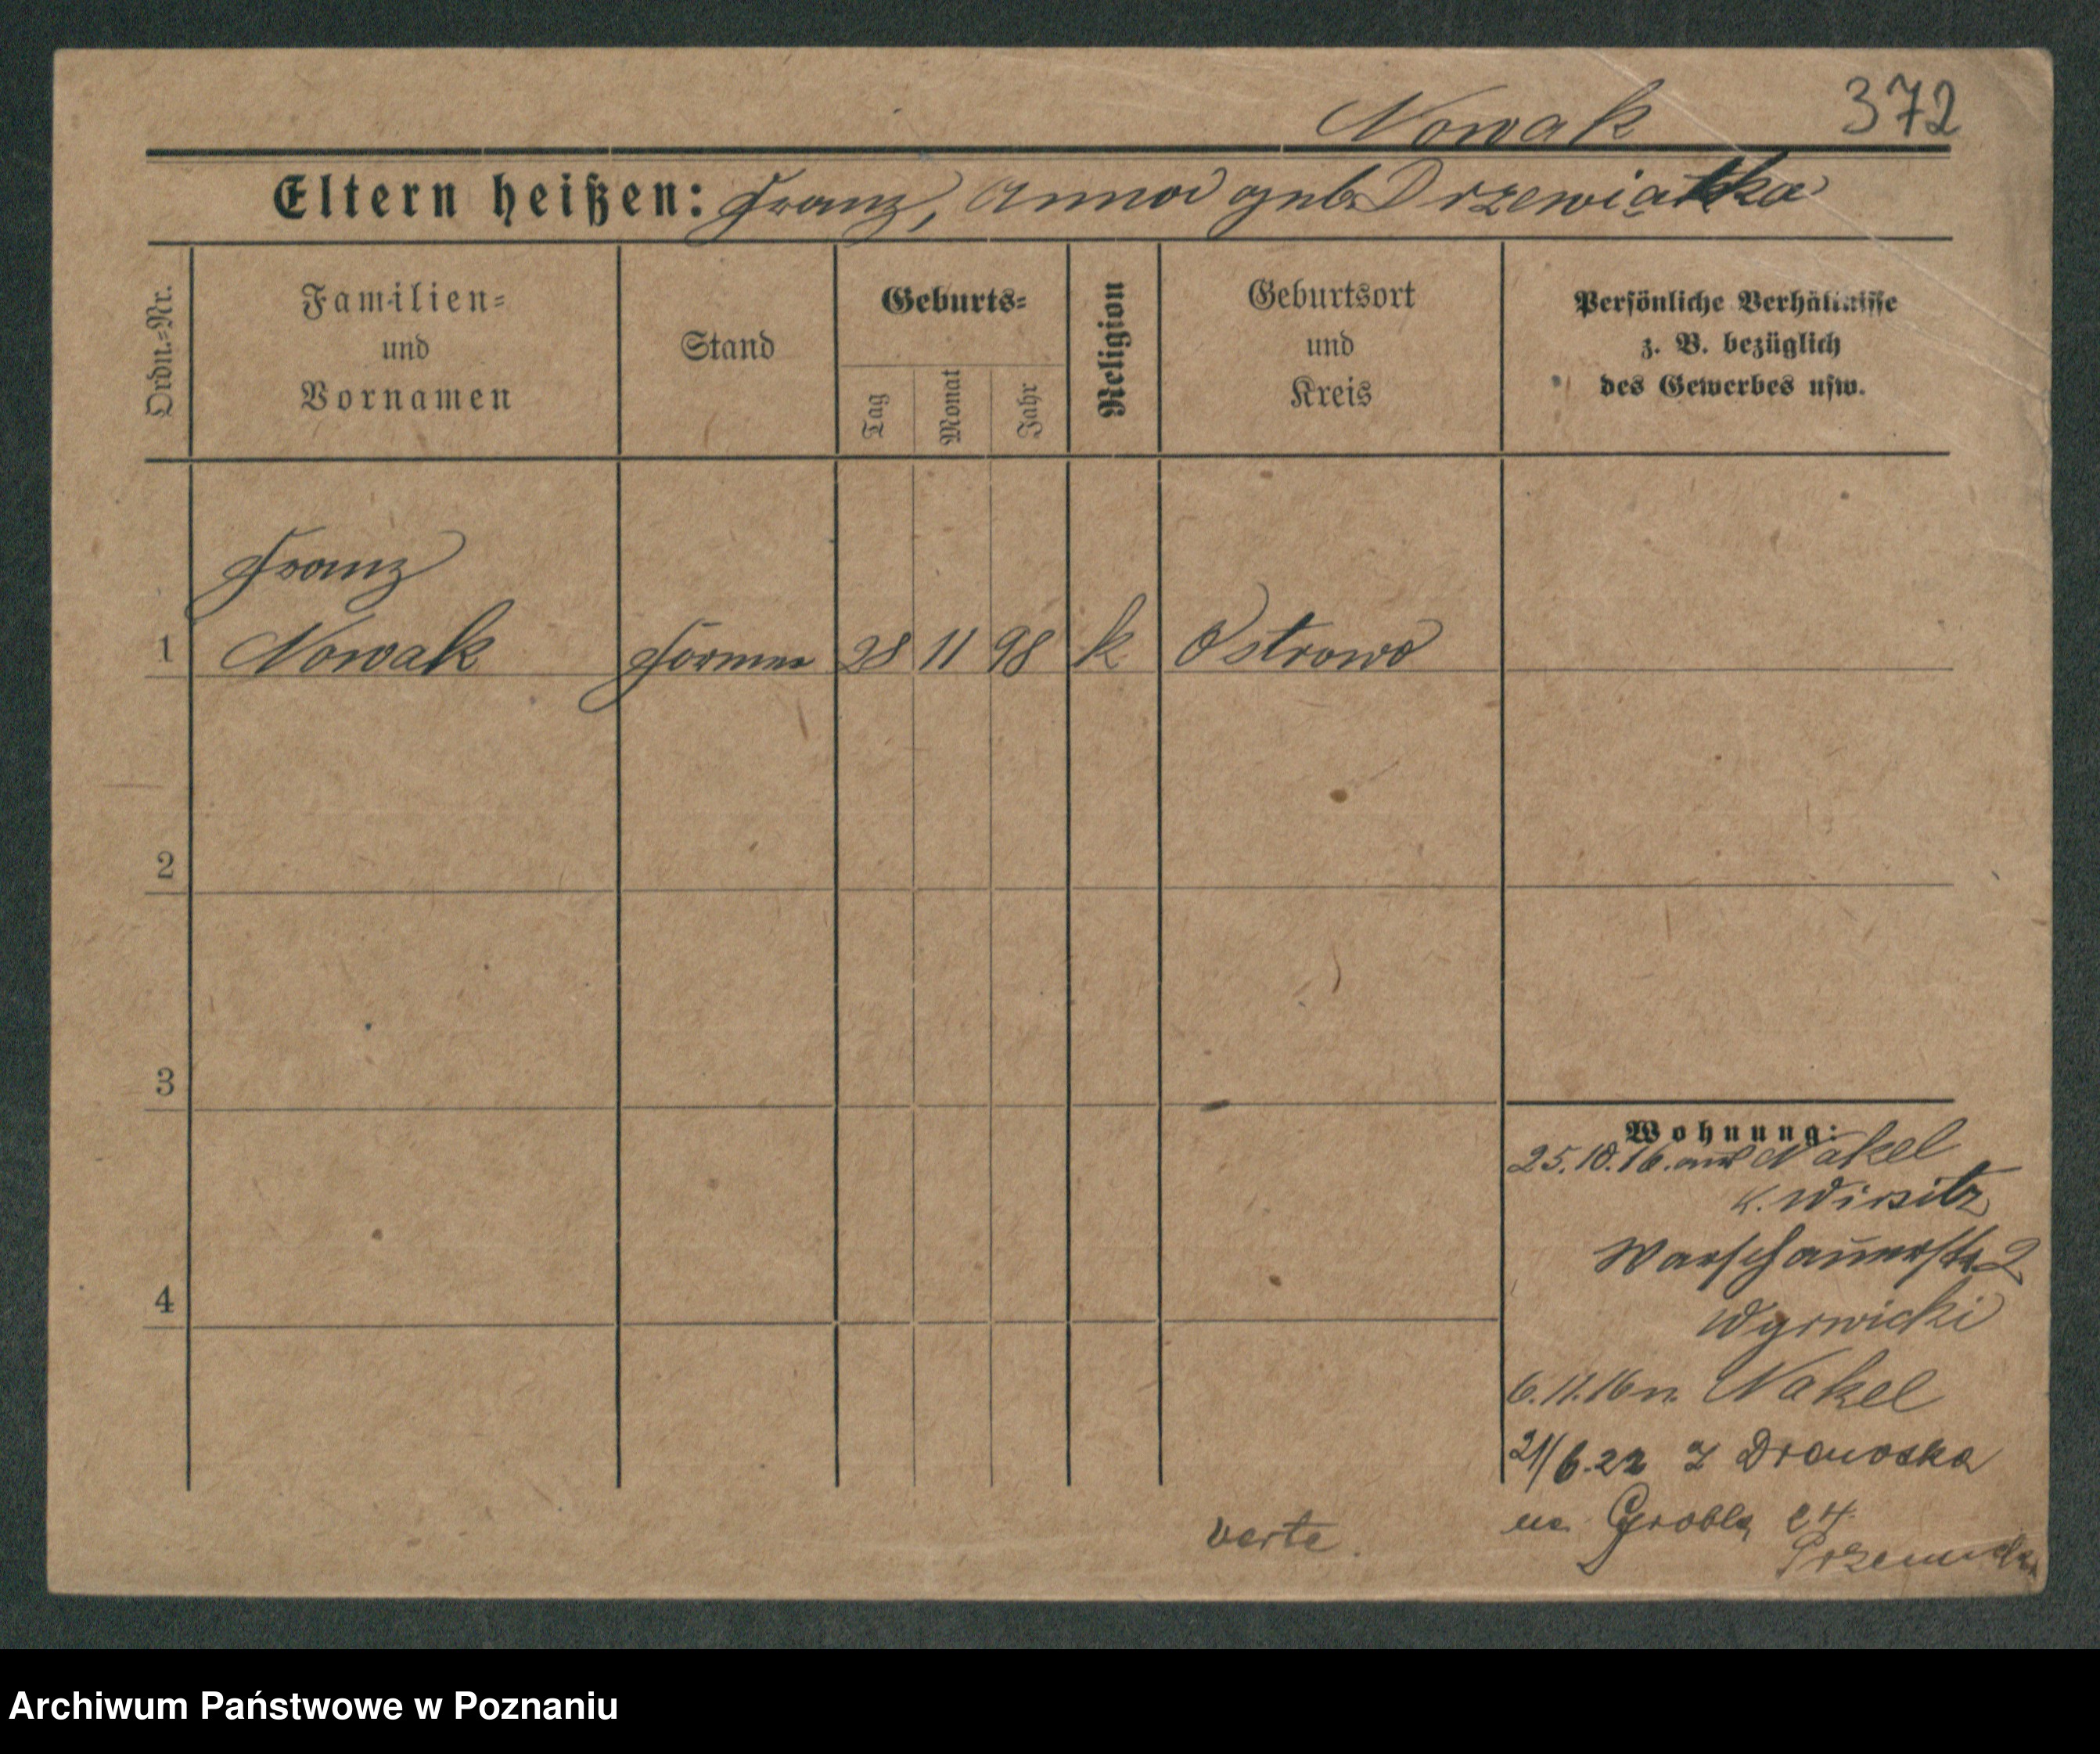 Nowak 372
Eltern heißen: Franz, Anna geb. Drzewiątka
Ordn.=Nr.
Familien=
und
Vornamen
Stand
Geburts=
Tag
Monat
Jahr
Religion
Geburtsort
und
Kreis
Persönliche Verhältnisse
z. B. bezüglich
des Gewerbes usw.
Franz
1 Nowak Former 28 11 98 k Ostrowo
2
3
4
Wohnung:
25.10.16. aus Nakel
K. Wirsitz
Warschauerstr 2
Wyrwicki
6.11.16 n. Nakel
21/6.22 Z
na Grobla 24
verte.
Archiwum Państwowe w Poznaniu